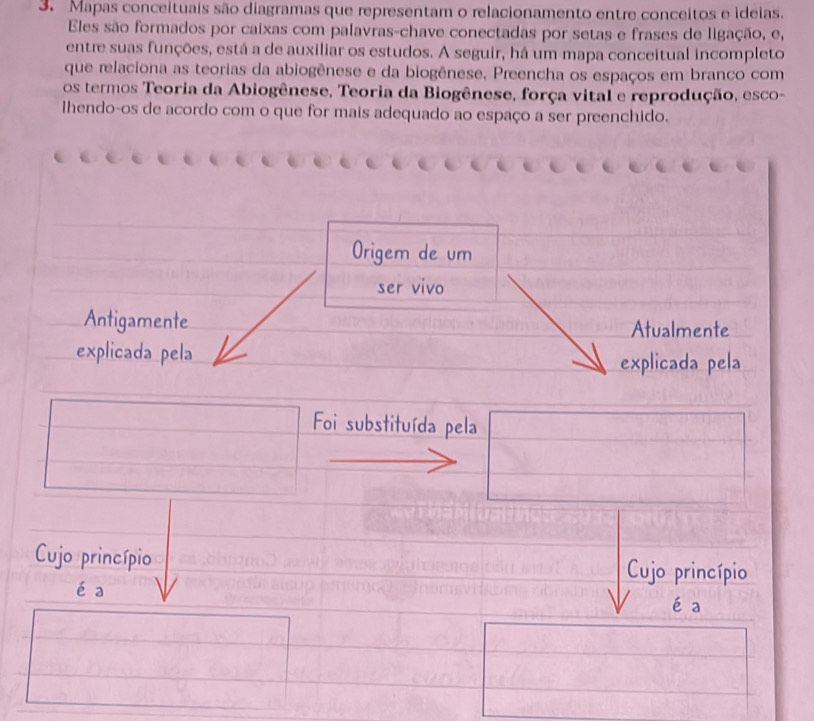 3. Mapas conceituais são diagramas que representam o relacionamento entre conceitos e ideias.
Eles são formados por caixas com palavras-chave conectadas por setas e frases de ligação, e,
entre suas funções, está a de auxiliar os estudos. A seguir, há um mapa conceitual incompleto
que relaciona as teorias da abiogênese e da biogênese. Preencha os espaços em branco com
os termos Teoria da Abiogênese, Teoria da Biogênese, força vital e reprodução, esco-
lhendo-os de acordo com o que for mais adequado ao espaço a ser preenchido.
Origem de um
ser vivo
Antigamente
explicada pela
Atualmente
explicada pela
Foi substituída pela
Cujo princípio
é a
Cujo princípio
é a